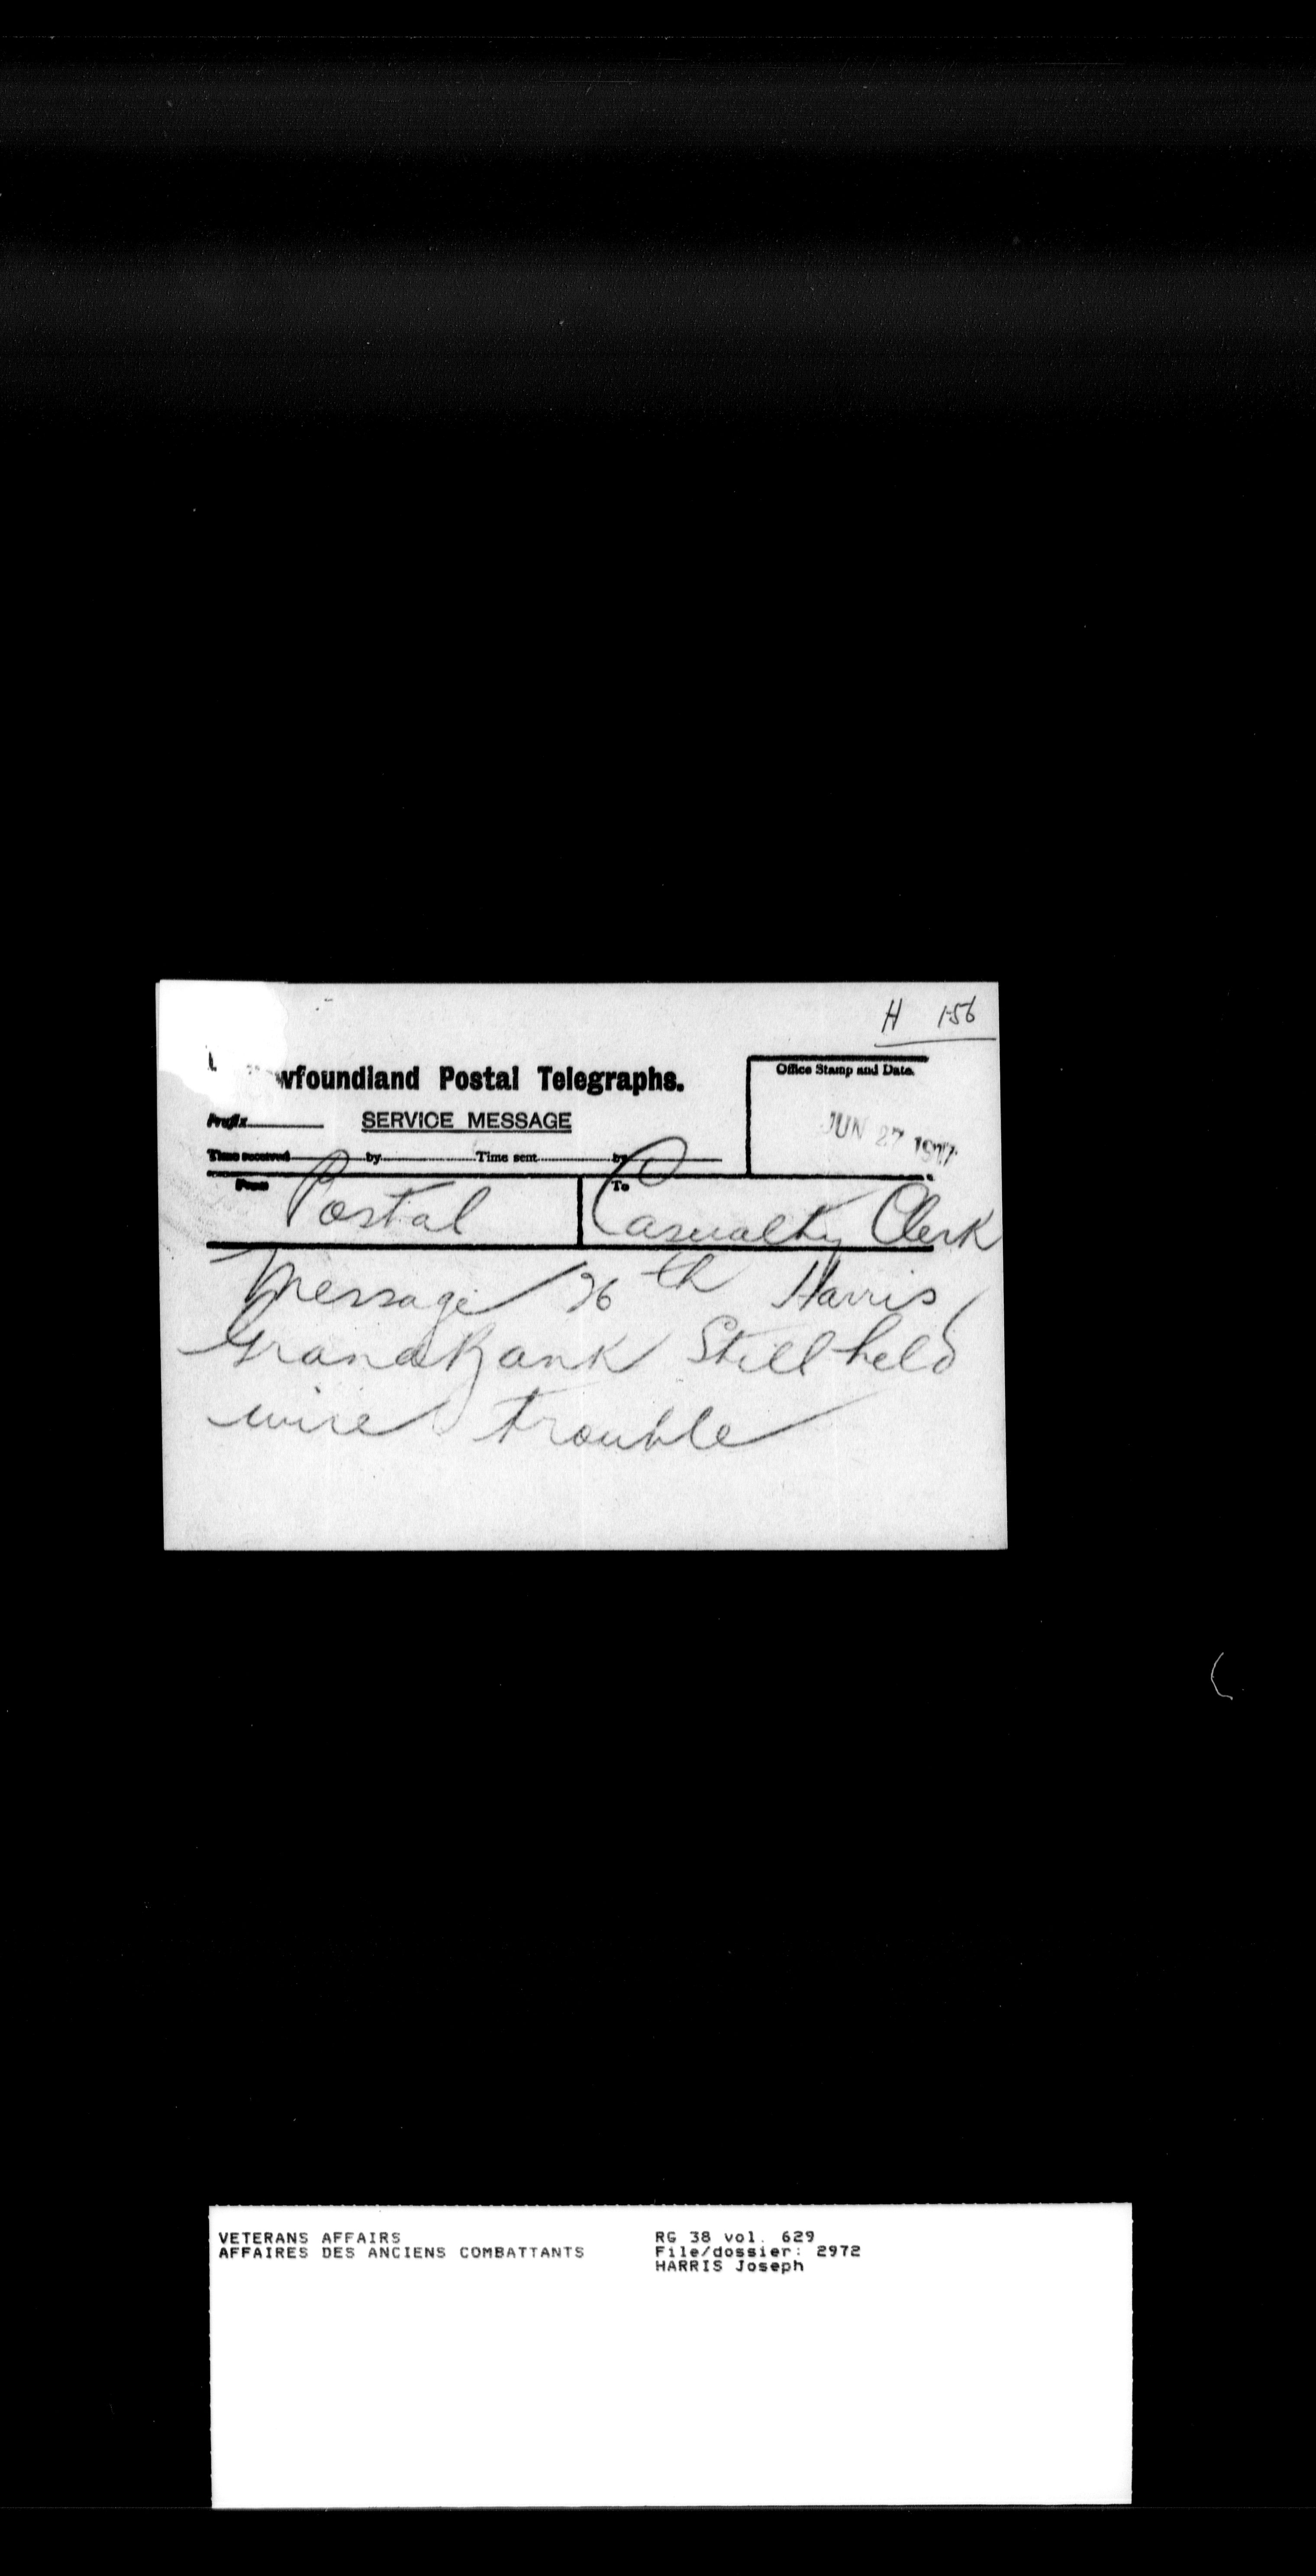 H 156
wfoundland Postal Telegraphs.
Office Stamp and Date.
Prefix
SERVICE MESSAGE
JUN 27 1917
Time received by Time sent by
From Postal To Casualty Clerk
Message 26th Harris
Grand Bank Still held
wire trouble
VETERANS AFFAIRS
AFFAIRES DES ANCIENS COMBATTANTS
RG 38 vol. 629
File/dossier: 2972
HARRIS Joseph